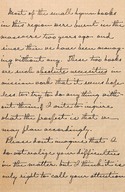 Most of the small hymn books
in this region were burnt in the
massacre two years ago and
since then we have been manag-
ing without any. These two books
are such absolute necessities
that it seems hope-
less to try to do any thing with-
out them I write to inquire
what the prospect is that we
may plan accordingly.
Please be assured that I
appreciate your difficulties
in the matter but I think it is
only right to call your attention